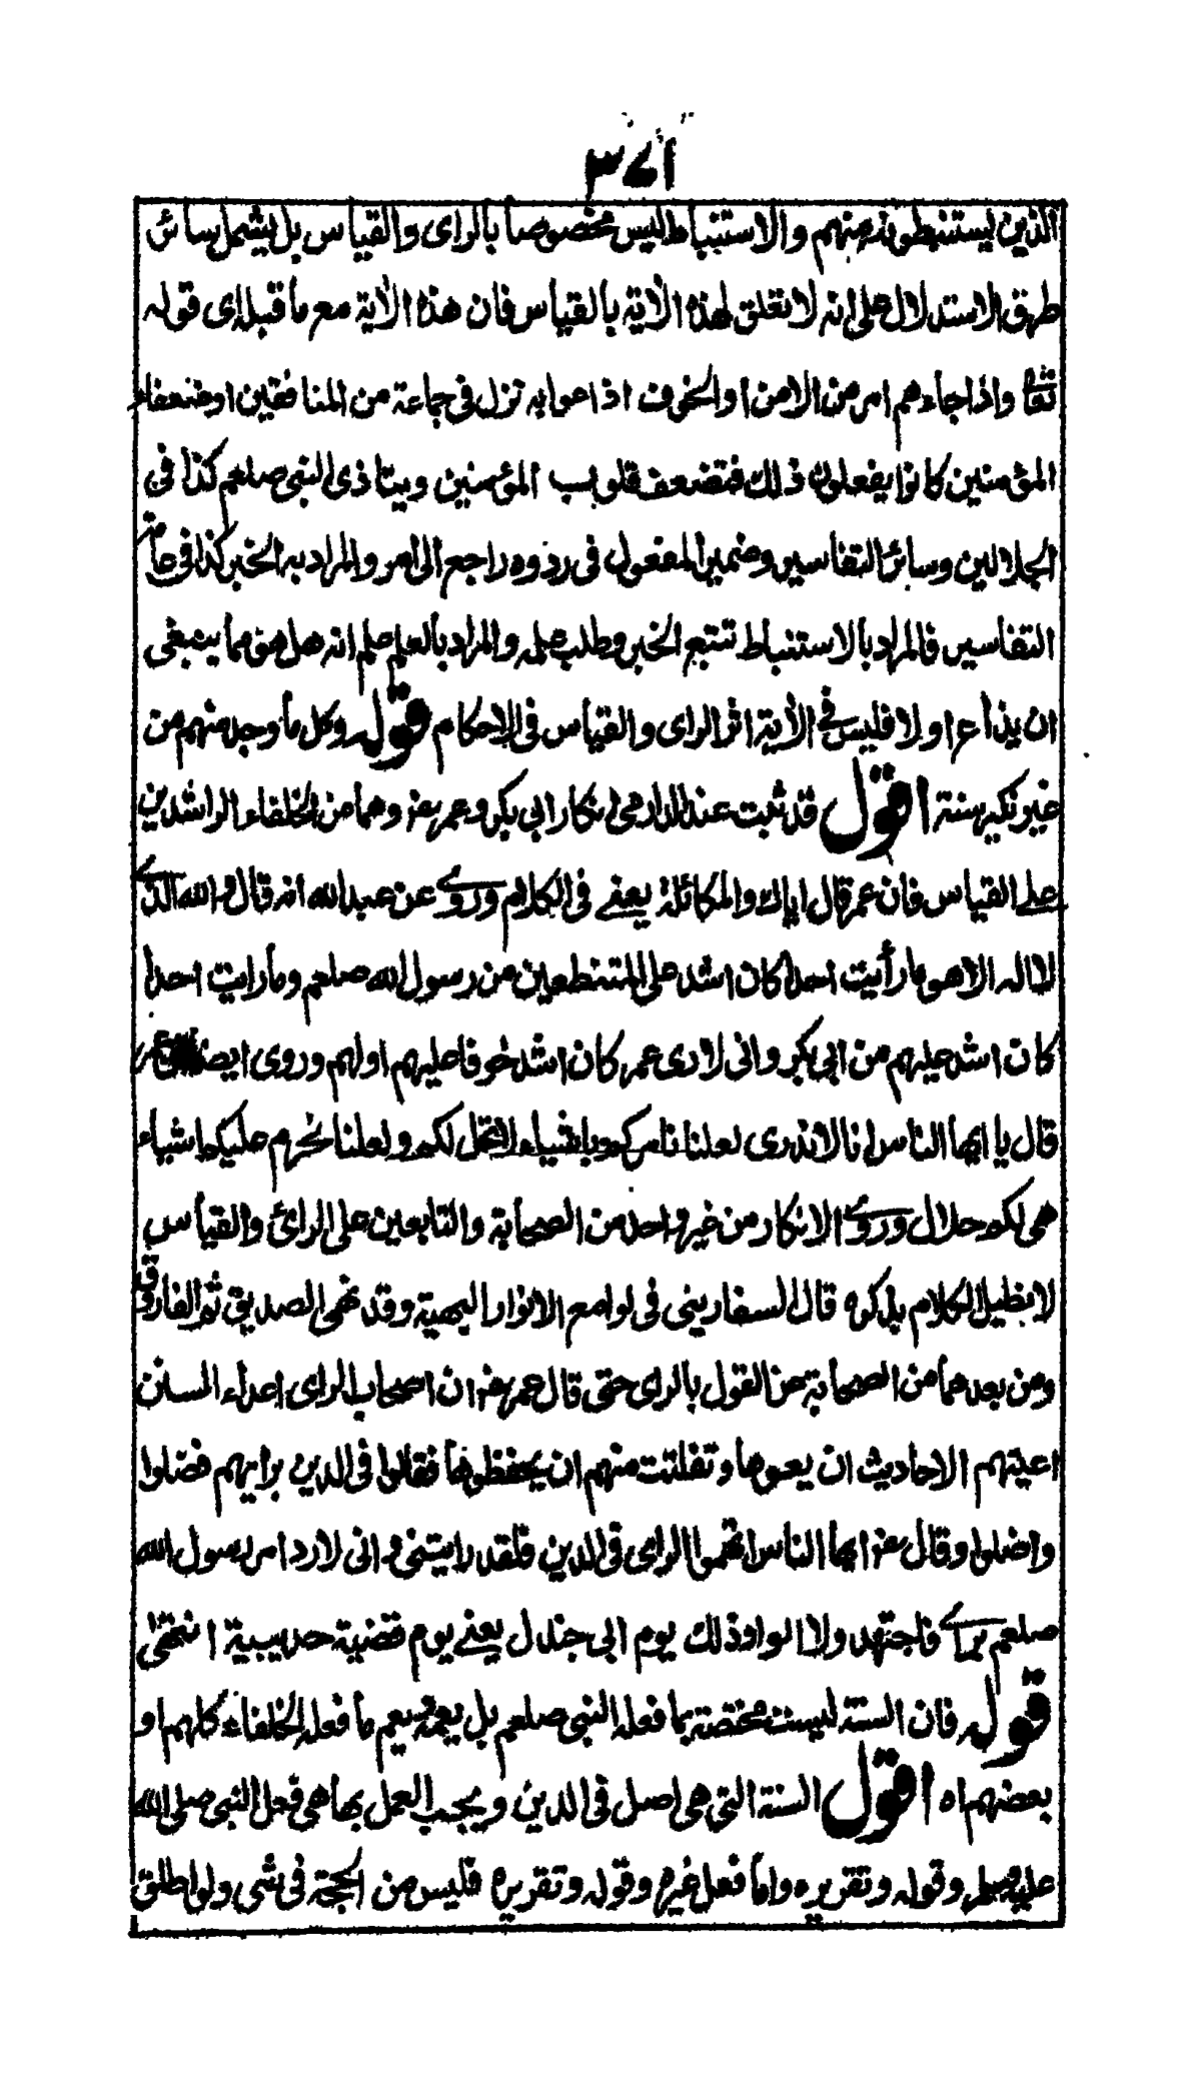 ٣٧١
الذين يستنبطونه منهم والاستنباط ليس مخصوصا بالراى والقياس بل يشمل سائر
طرق الاستدلال على انه لا تعلق لهذه الاية بالقياس فان هذه الاية مع ما قبله اى قوله
تعالى واذا جاءهم امر من الامن او الخوف اذاعوا به نزل فى جماعة من المنافقين او ضعفاء
المؤمنين كانوا يفعلون ذلك فتضعف قلوب المؤمنين ويتاذى النبى صلعم كذا فى
الجلالين وسائر التفاسير وضمير المفعول فى ردوه راجع الى امر والمراد به الخبر كذا فى عامة
التفاسير فالمراد بالاستنباط تتبع الخبر وطلب علمه والمراد بالعلم علم انه هل هو مما ينبغى
ان يذاع اولا فليس فى الاية اثر الراى والقياس فى الاحكام قوله وكل ما وجد منهم من
غير نكير سنة اقول قد ثبت عند الدارمى انكار ابى بكر وعمر رض وهما من الخلفاء الراشدين
على القياس فان عمر قال اياك والمكائلة يعنے فى الكلام وروے عن عبدالله انه قال والله الذى
لا اله الا هو ما رأيت احدا كان اشد على المتنطعين من رسول الله صلعم وما رايت احدا
كان اشد عليهم من ابى بكر وانى لارى عمر كان اشد خوفا عليهم اولهم وروى ايضا عمر
قال يا ايها الناس انا لا ندرى لعلنا نامركم باشياء لا تحل لكم ولعلنا نحرم عليكم اشياء
هى لكم حلال وروے الانكار من غير واحد من الصحابة والتابعين على الراى والقياس
لا نطيل الكلام بذكره قال السفارينى فى لوامع الانوار البهية وقد نهى الصديق ثم الفاروق
ومن بعدهما من الصحابة عن القول بالراى حتى قال عمر رض ان اصحاب الراى اعداء السنن
اعيتهم الاحاديث ان يعوها وتفلتت منهم ان يحفظوها فقالوا فى الدين برايهم فضلوا
واضلوا وقال رض ايها الناس اتهموا الراى فى الدين فلقد رايتنى وانى لارد امر رسول الله
صلعم براے فاجتهد ولا الوا وذلك يوم ابى جندل يعنے يوم قضية حديبية انتهى
قوله فان السنة ليست مختصة بما فعله النبى صلعم بل يعمه ويعم ما فعله الخلفاء كلهم او
بعضهم اه اقول السنة التى هى اصل فى الدين ويجب العمل بها هى فعل النبى صلى الله
عليه وسلم وقوله وتقريره واما فعل غيره وقوله وتقريره فليس من الحجة فى شى ولو اطلق